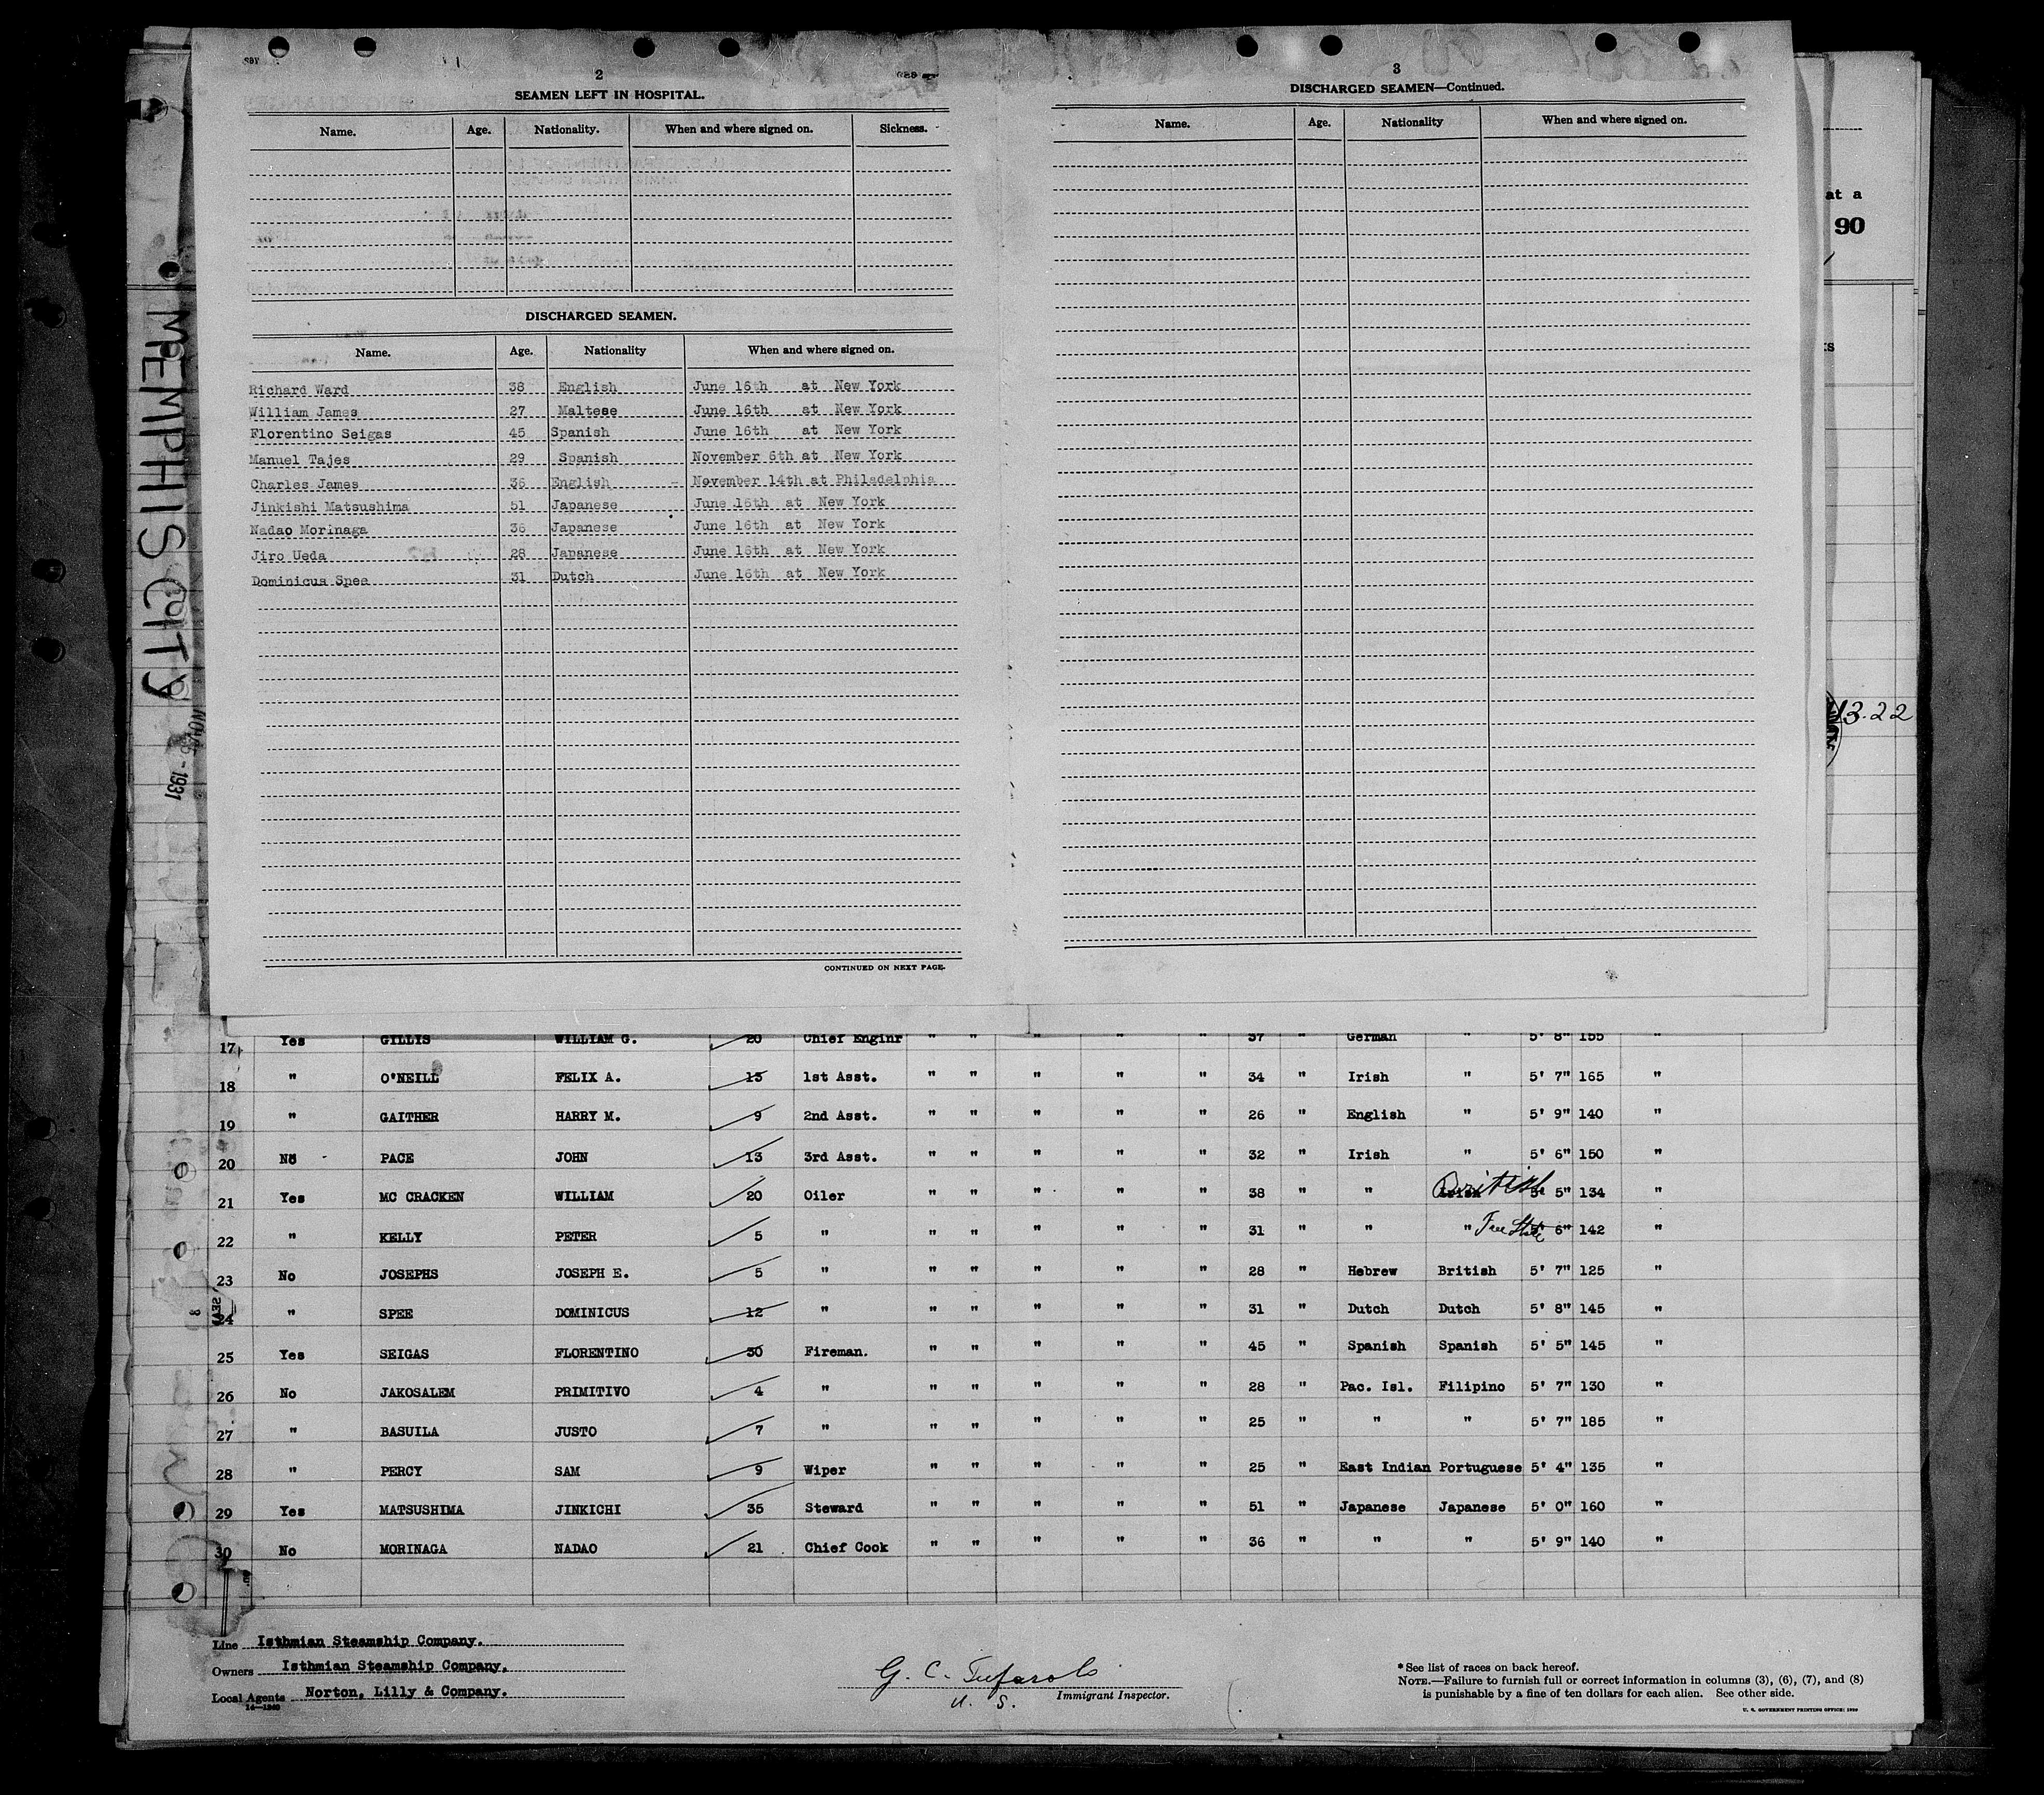 2
SEAMEN LEFT IN HOSPITAL.
Name. Age. Nationality. When and where signed on. Sickness.
DISCHARGED SEAMEN.
Name. Age. Nationality When and where signed on.
Richard Ward 38 English June 16th at New York
William James 27 Maltese June 16th at New York
Florentino Seigas 45 Spanish June 16th at New York
Manuel Tajes 29 Spanish November 6th at New York
Charles James 36 English November 14th at Philadelphia
Jinkishi Matsushima 51 Japanese June 16th at New York
Nadao Morinaga 36 Japanese June 16th at New York
Jiro Ueda 28 Japanese June 16th at New York
Dominicus Spee 31 Dutch June 16th at New York
CONTINUED ON NEXT PAGE.
3
DISCHARGED SEAMEN—Continued.
Name. Age. Nationality When and where signed on.
at a
90
13.22
MEMPHIS CITY
1931
17 Yes GILLIS WILLIAM G. 20 Chief Enginr " " " " " 37 " German " 5' 8" 155 "
18 " O'NEILL FELIX A. 13 1st Asst. " " " " " 34 " Irish " 5' 7" 165 "
19 " GAITHER HARRY M. 9 2nd Asst. " " " " " 26 " English " 5' 9" 140 "
20 No PACE JOHN 13 3rd Asst. " " " " " 32 " Irish " 5' 6" 150 "
21 Yes MC CRACKEN WILLIAM 20 Oiler " " " " " 38 " " British 5' 5" 134 "
22 " KELLY PETER 5 " " " " " " 31 " " " Free State 5' 6" 142 "
23 No JOSEPHS JOSEPH E. 5 " " " " " " 28 " Hebrew British 5' 7" 125 "
24 " SPEE DOMINICUS 12 " " " " " " 31 " Dutch Dutch 5' 8" 145 "
25 Yes SEIGAS FLORENTINO 30 Fireman. " " " " " 45 " Spanish Spanish 5' 5" 145 "
26 No JAKOSALEM PRIMITIVO 4 " " " " " " 28 " Pac. Isl. Filipino 5' 7" 130 "
27 " BASUILA JUSTO 7 " " " " " " 25 " " " 5' 7" 185 "
28 " PERCY SAM 9 Wiper " " " " " 25 " East Indian Portuguese 5' 4" 135 "
29 Yes MATSUSHIMA JINKICHI 35 Steward " " " " " 51 " Japanese Japanese 5' 0" 160 "
30 No MORINAGA NADAO 21 Chief Cook " " " " " 36 " " " 5' 9" 140 "
Line Isthmian Steamship Company.
Owners Isthmian Steamship Company.
Local Agents Norton, Lilly & Company.
14—1240
G. C.
U. S. Immigrant Inspector.
* See list of races on back hereof.
NOTE.—Failure to furnish full or correct information in columns (3), (6), (7), and (8)
is punishable by a fine of ten dollars for each alien. See other side.
U. S. GOVERNMENT PRINTING OFFICE: 1929